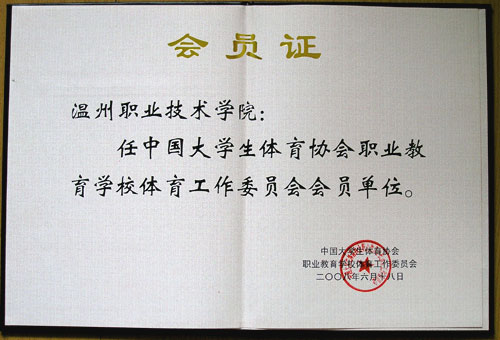 会员证
温州职业技术学院：
任中国大学生体育协会职业教
育学校体育工作委员会会员单位。
中国大学生体育协会
职业教育学校体育工作委员会
二〇〇八年六月十八日